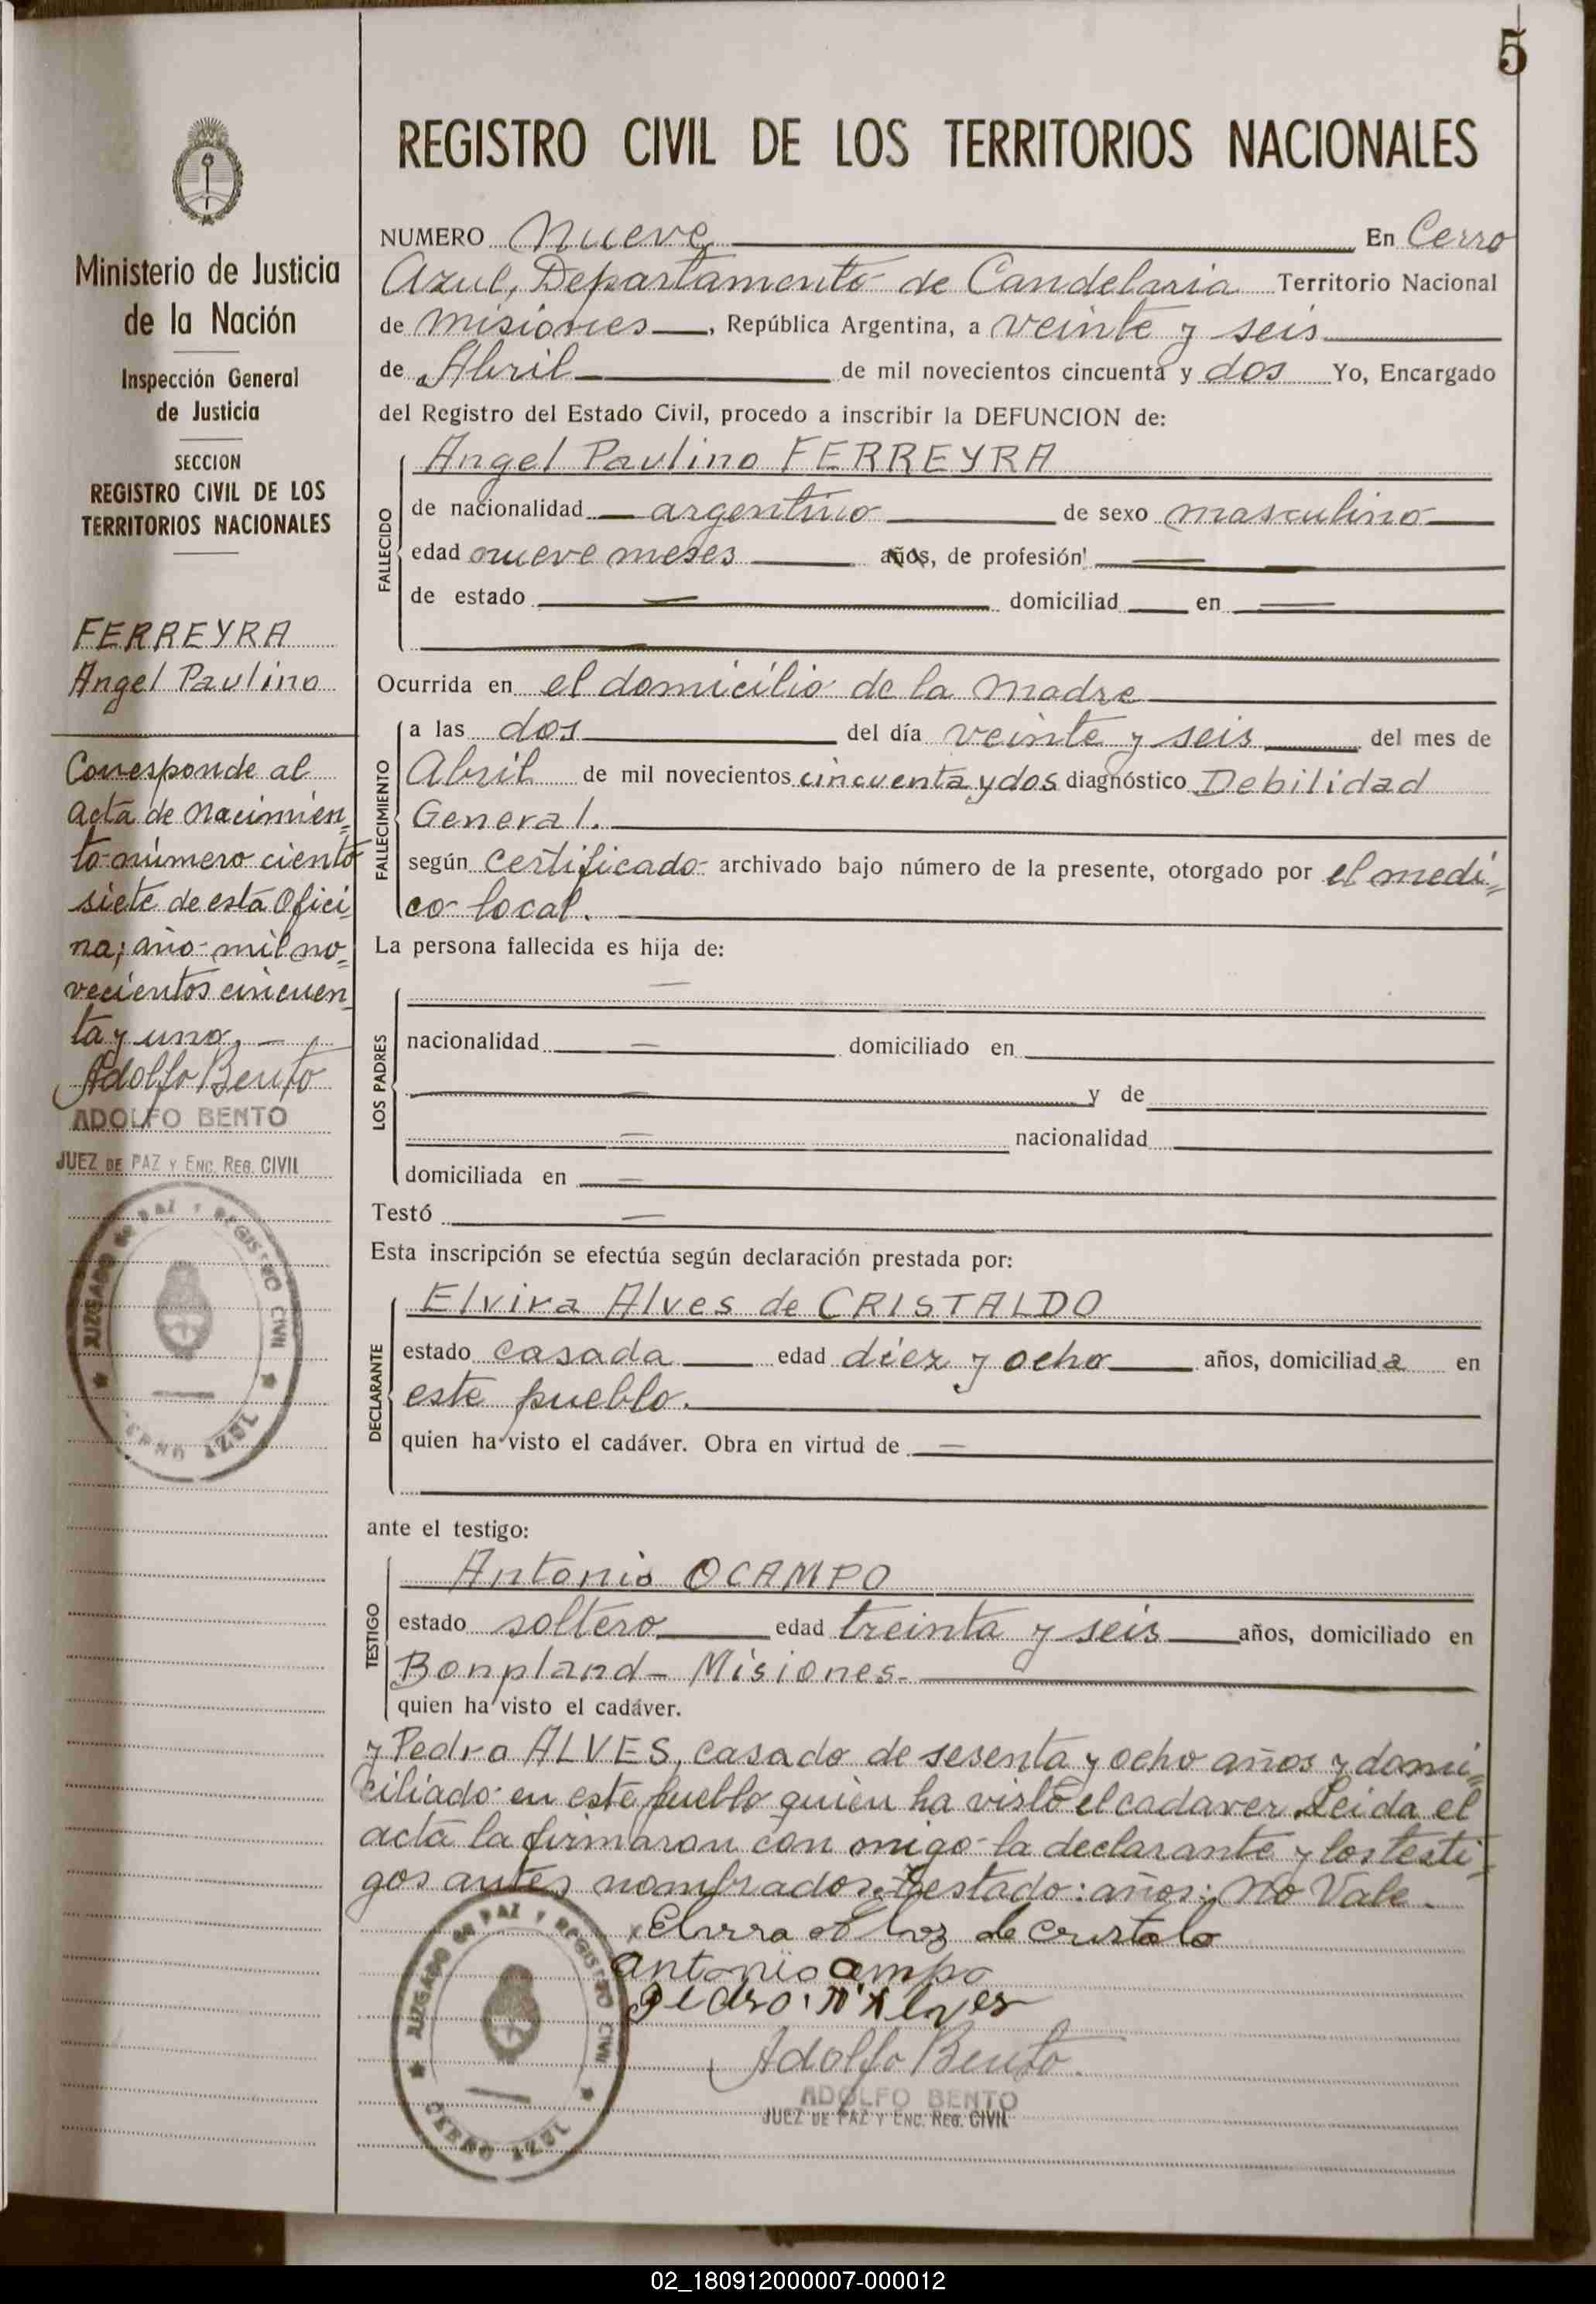 5
REGISTRO CIVIL DE LOS TERRITORIOS NACIONALES
Ministerio de Justicia
de la Nación
Inspección General
de Justicia
SECCION
REGISTRO CIVIL DE LOS
TERRITORIOS NACIONALES
FERREYRA
Angel Paulino
Corresponde al
acta de nacimien=
to número ciento
siete de esta Ofici
na; año mil no=
vecientos cincuen
ta y uno. —
Adolfo Bento
ADOLFO BENTO
JUEZ DE PAZ Y ENC. REG. CIVIL
JUZGADO DE PAZ Y REGISTRO CIVIL
CERRO AZUL
NUMERO Nueve En Cerro
Azul, Departamento de Candelaria Territorio Nacional
de Misiones, República Argentina, a veinte y seis
de Abril de mil novecientos cincuenta y dos Yo, Encargado
del Registro del Estado Civil, procedo a inscribir la DEFUNCION de:
FALLECIDO
Angel Paulino FERREYRA
de nacionalidad argentino de sexo masculino
edad nueve meses años, de profesión —
de estado — domiciliad en —
Ocurrida en el domicilio de la madre
FALLECIMIENTO
a las dos del día veinte y seis del mes de
Abril de mil novecientos cincuenta y dos diagnóstico Debilidad
General.
según certificado archivado bajo número de la presente, otorgado por el medi=
co local.
La persona fallecida es hija de:
LOS PADRES
nacionalidad — domiciliado en
— y de
— nacionalidad
domiciliada en —
Testó —
Esta inscripción se efectúa según declaración prestada por:
DECLARANTE
Elvira Alves de CRISTALDO
estado casada edad diez y ocho años, domiciliada en
este pueblo.
quien ha visto el cadáver. Obra en virtud de —
ante el testigo:
TESTIGO
Antonio OCAMPO
estado soltero edad treinta y seis años, domiciliado en
Bonpland - Misiones.
quien ha visto el cadáver.
y Pedro ALVES, casado de sesenta y ocho años y domi=
ciliado en este pueblo quien ha visto el cadaver. Leida el
acta la firmaron con migo la declarante y los testi=
gos antes nombrados. Testado: años: No Vale.
de Cristalo
Antonio
Pedro Alves
Adolfo Bento
ADOLFO BENTO
JUEZ DE PAZ Y ENC. REG. CIVIL
JUZGADO DE PAZ Y REGISTRO CIVIL
CERRO AZUL
02_180912000007-000012